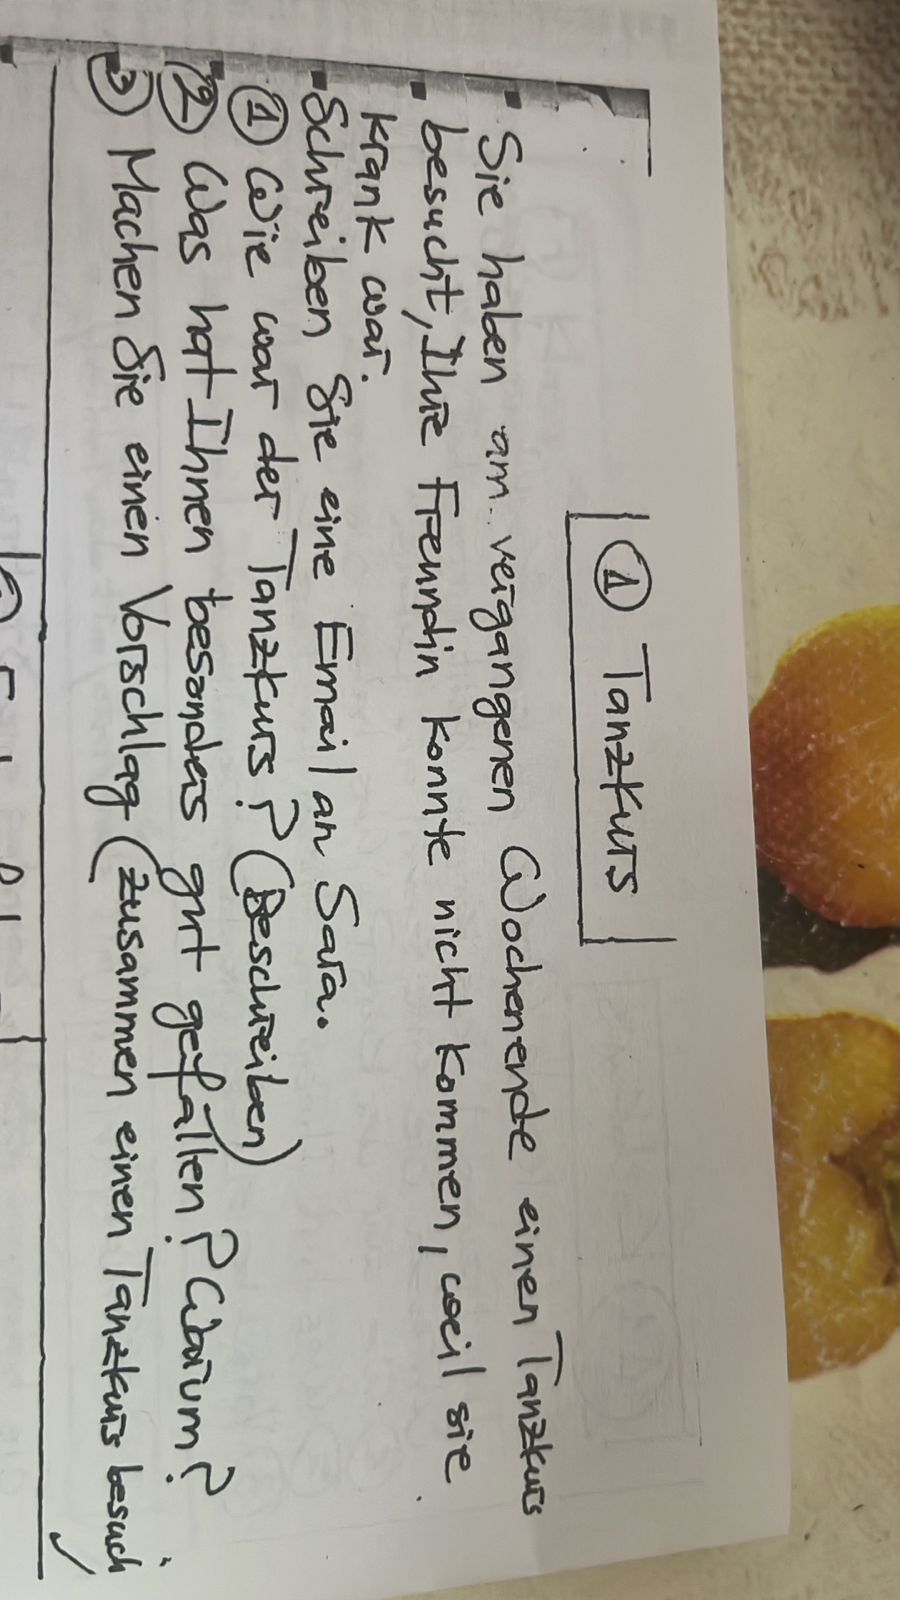 ① Tanzkurs
Sie haben am vergangenen Wochenende einen Tanzkurs
besucht, Ihre Freundin konnte nicht kommen, weil sie
krank war.
Schreiben Sie eine Email an Sara.
① Wie war der Tanzkurs? (Beschreiben)
② Was hat Ihnen besonders gut gefallen? Warum?
③ Machen Sie einen Vorschlag (zusammen einen Tanzkurs besuch